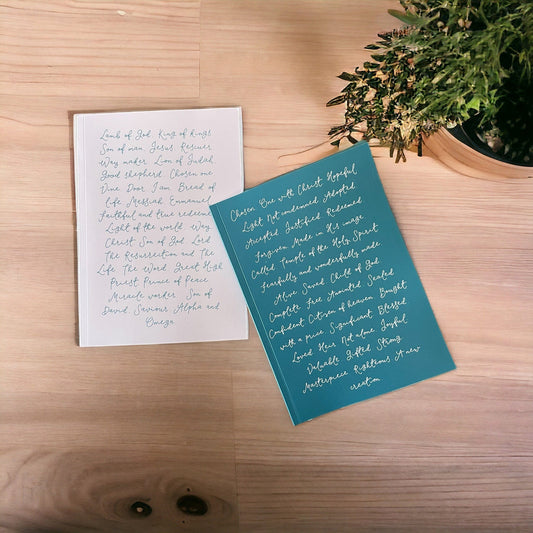 Lamb of God King of kings
Son of man Jesus Rescuer
Way maker Lion of Judah
Good shepherd Chosen one
Vine Door I am Bread of
life Messiah Emmanuel
Faithful and true redeemer
Light of the world Way
Christ Son of God Lord
The Resurrection and The
Life The Word Great High
Priest Prince of Peace
Miracle worker Son of
David Saviour Alpha and
Omega
Chosen One with Christ Hopeful
Light Not condemned Adopted
Accepted Justified Redeemed
Forgiven Made in His image
Called Temple of the Holy Spirit
Fearfully and wonderfully made
Alive Saved Child of God
Complete Free Anointed Sealed
Confident Citizen of heaven Bought
with a price Significant Blessed
Loved Heir Not alone Joyful
Valuable Gifted Strong
Masterpiece Righteous A new
creation